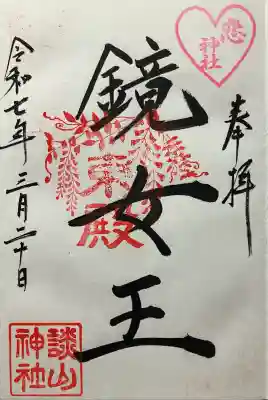 恋神社
奉拝
鏡女王
東殿
令和七年三月二十日
談山神社